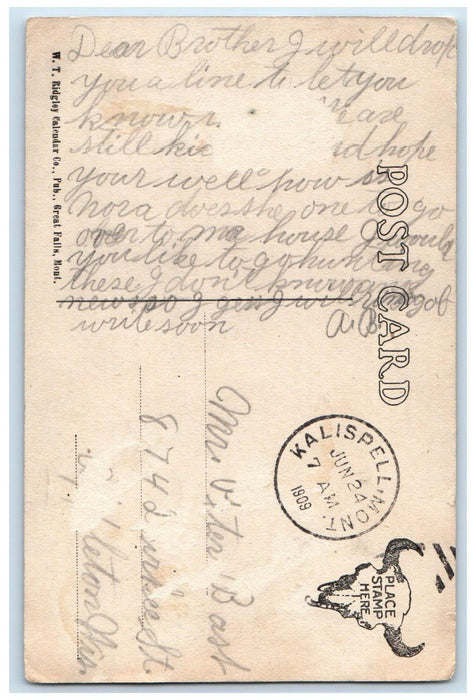 Dear Brother I will drop
you a line to let you
know we are
still kic nd hope
your well how is
Nora does she one to go
over to ma house I would
you like to go hunting
these I don't know any
news so I gess I will
write soon A B
W. T. Ridgley Calendar Co., Pub., Great Falls, Mont.
POST CARD
KALISPELL, MONT.
JUN 24
7 AM
1909
PLACE
STAMP
HERE
Mr. Bast
874 St.
leton Wis.